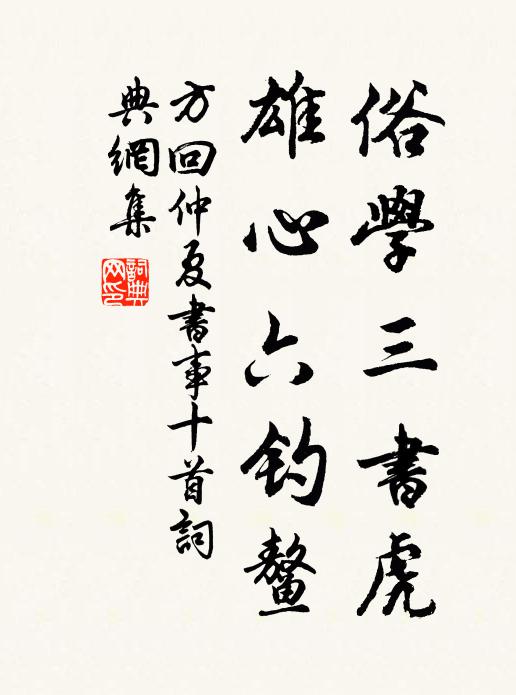 俗學三書虎
雄心六釣鰲
方回仲夏書事十首詞
典網集
詞典
网印